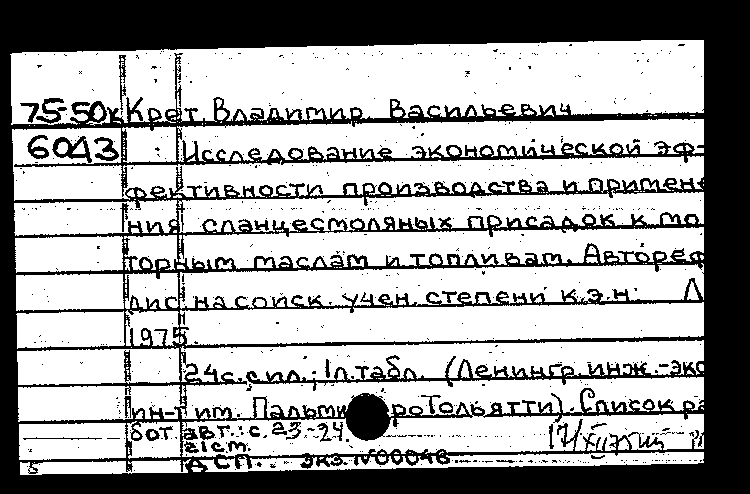 75-50к Крет, Владимир Васильевич
6043 Исследование экономической эф-
фективности производства и примене
ния сланцесмоляных присадок к мо
торным маслам и топливам. Автореф
дис на соиск. учен. степени к.э.н. Л
1975.
24с. с ил.; 1л. табл. (Ленингр. инж.-эко
ин-т им. Пальмиро Тольятти). Список ра
бот авт.: с. 23-24.
ДСП. Экз. N00046